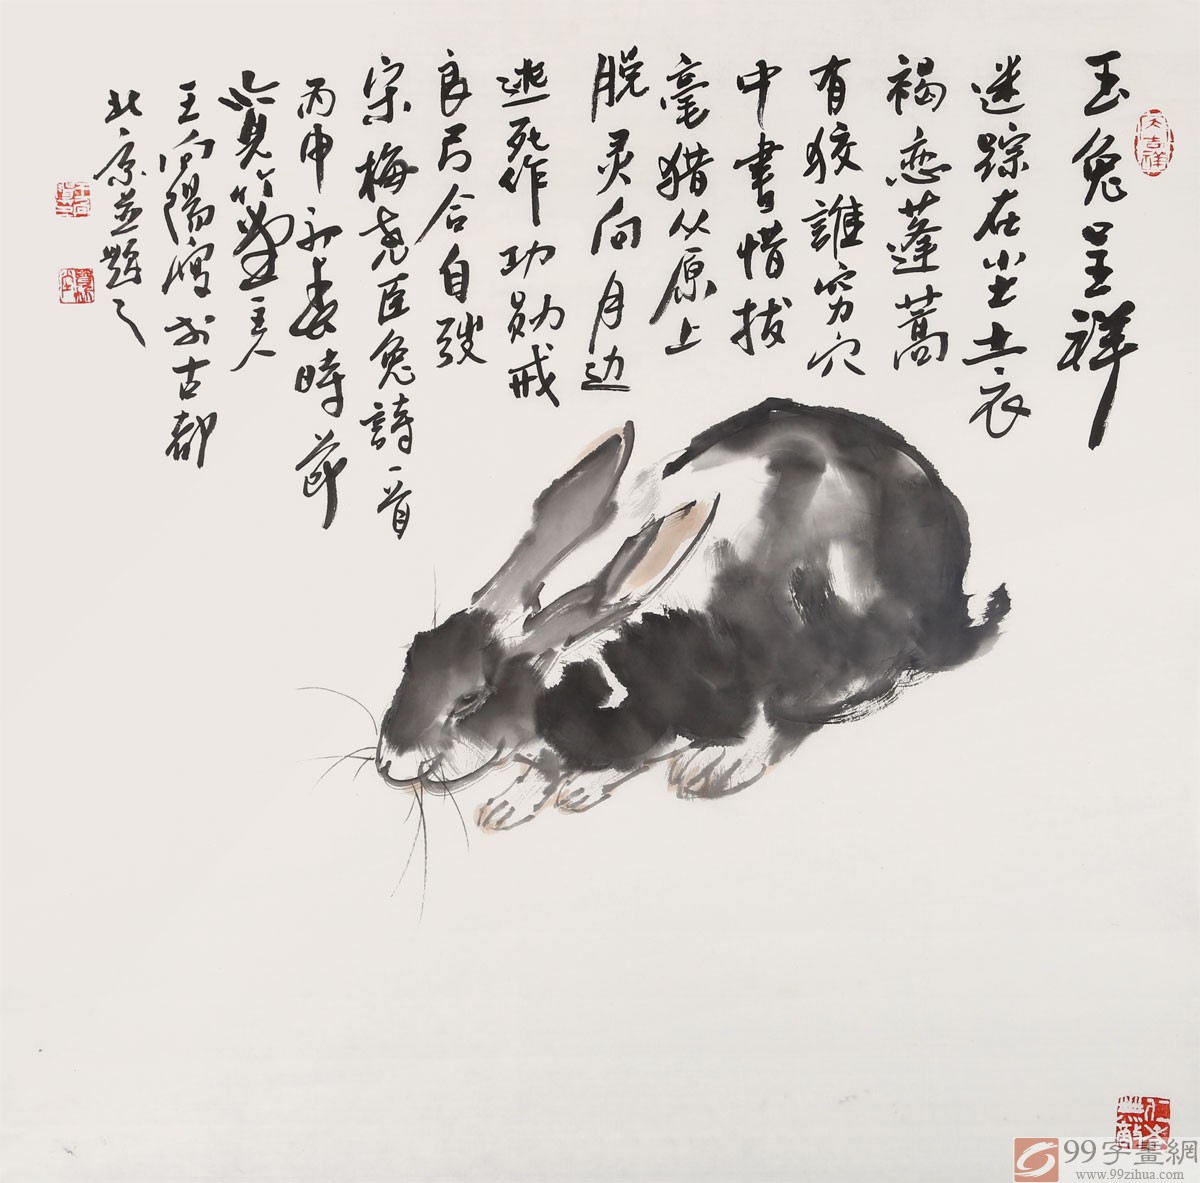 玉兔呈祥
迷踪在尘土衣
褐恋蓬蒿
有狡誰穷穴
中書惜拔
毫猎从原上
脱灵向月边
逃死作功勋戒
良弓合自弢
宋梅尧臣兔詩一首
丙申初春時节
主人
王向陽寫於古都
北京並題之
仁者無敵
99字畫網
www.99zihua.com